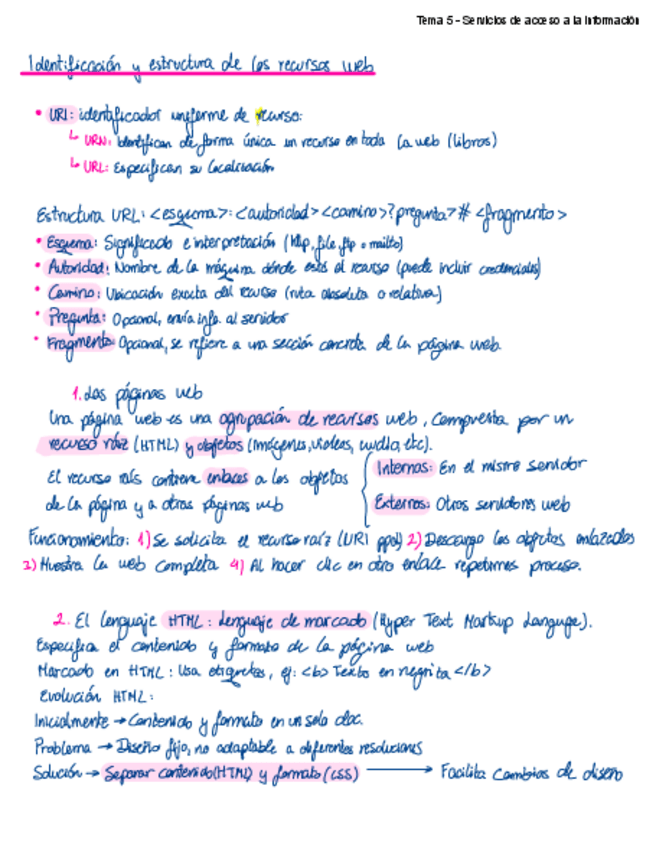 Tema 5 - Servicios de acceso a la información
Identificación y estructura de los recursos web
• URI: identificador uniforme de recurso:
↳ URN: Identifican de forma única un recurso en toda la web (libros)
↳ URL: Especifican su localización
Estructura URL: <esquema>: <autoridad> <camino>? pregunta> # <fragmento>
• Esquema: Significado e interpretación (http, file, ftp o mailto)
• Autoridad: Nombre de la máquina dónde está el recurso (puede incluir credenciales)
• Camino: Ubicación exacta del recurso (ruta absoluta o relativa)
• Pregunta: Opcional, envía info. al servidor
• Fragmento: Opcional, se refiere a una sección concreta de la página web
1. Las páginas web
Una página web es una agrupación de recursos web, compuesta por un
recurso raíz (HTML) y objetos (imágenes, videos, audio, etc).
El recurso raíz contiene enlaces a los objetos
de la página y a otras páginas web
Internos: En el mismo servidor
Externos: Otros servidores web
Funcionamiento: 1) Se solicita el recurso raíz (URI ppal) 2) Descarga los objetos enlazados
3) Muestra la web completa 4) Al hacer clic en otro enlace repetimos proceso.
2. El lenguaje HTML: Lenguaje de marcado (Hyper Text Markup Language).
Especifica el contenido y formato de la página web
Marcado en HTML: Usa etiquetas, ej: <b> Texto en negrita </b>
Evolución HTML:
Inicialmente → Contenido y formato en un solo doc.
Problema → Diseño fijo, no adaptable a diferentes resoluciones
Solución → Separar contenido (HTML) y formato (CSS) → Facilita cambios de diseño